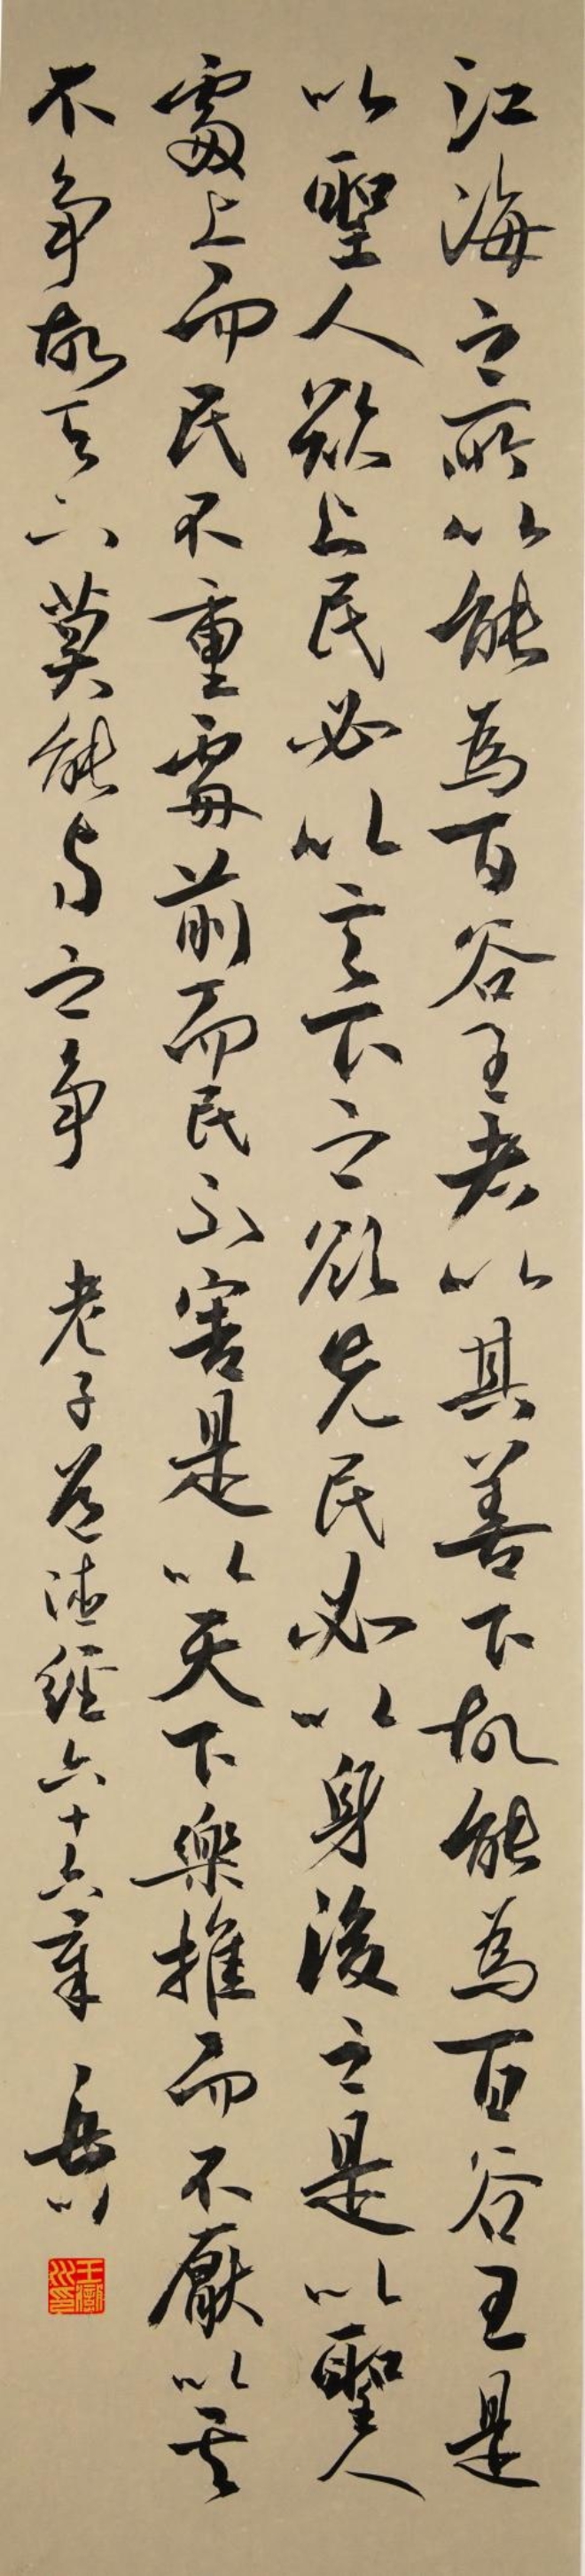 江海之所以能為百谷王者以其善下故能為百谷王是
以聖人欲上民必以言下之欲先民必以身後之是以聖人
處上而民不重處前而民不害是以天下樂推而不厭以其
不爭故天下莫能与之爭 老子道德經六十六章